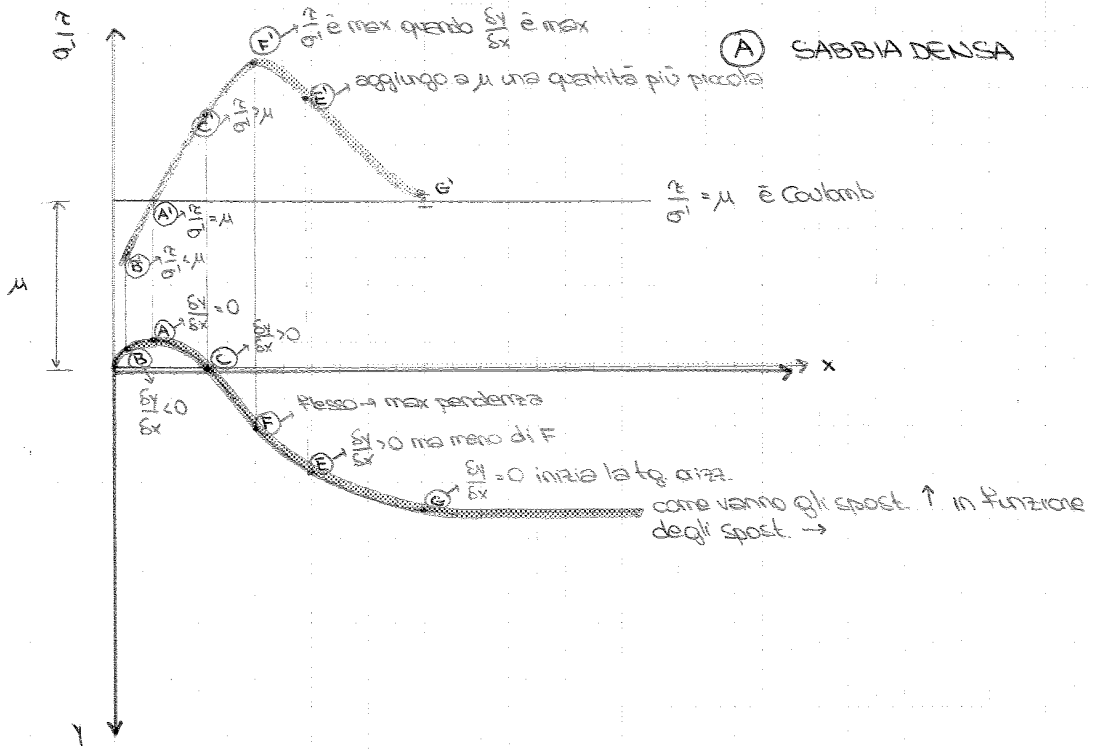 τ/σ'
F' → τ/σ' è max quando δy/δx è max
A SABBIA DENSA
E' → aggiungo a μ una quantità più piccola
C' → τ/σ' > μ
G'
τ/σ' = μ è Coulomb
A' → τ/σ' = μ
B' → τ/σ' < μ
μ
A → δy/δx = 0
C → δy/δx > 0
x
B → δy/δx < 0
F → flesso → max pendenza
E → δy/δx > 0 ma meno di F
G → δy/δx = 0 inizia la tg orizz.
come vanno gli spost. ↑ in funzione
degli spost. →
y